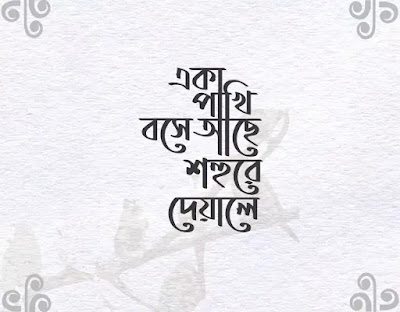 একা
পাখি
বসে আছে
শহুরে
দেয়ালে